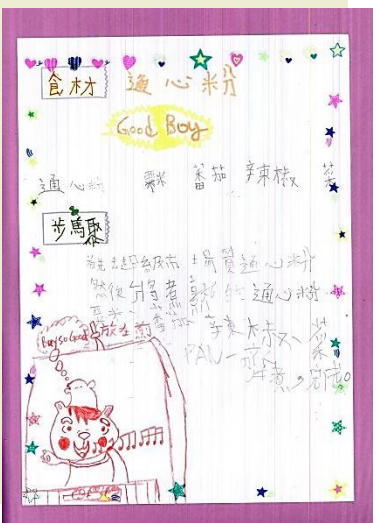 食材 通心粉
Good Boy
通心粉 粟米 蕃茄 辣椒 菜
步驟
首先去超級市場買通心粉
然後將煮熟的通心粉
粟米、蕃茄、辣椒、菜
放在煎PAN一齊煮，完成。
Boy so Good